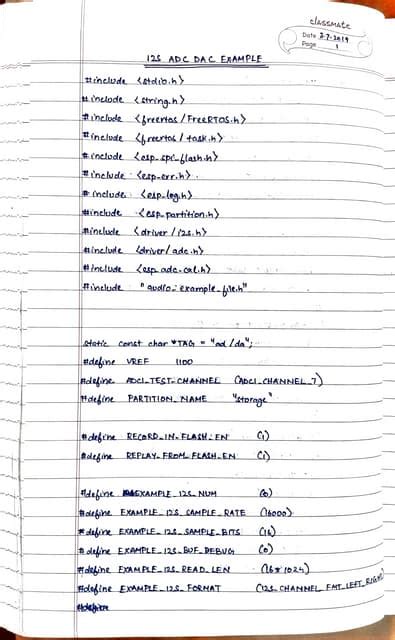 classmate
Date 2-7-2019
Page 1
I2S ADC DAC EXAMPLE
#include <stdio.h>
#include <string.h>
#include <freertos/FreeRTOS.h>
#include <freertos/task.h>
#include <esp_spi_flash.h>
#include <esp_err.h>
#include <esp_log.h>
#include <esp_partition.h>
#include <driver/i2s.h>
#include <driver/adc.h>
#include <esp_adc_cal.h>
#include "audio_example_file.h"
static const char *TAG = "ad/da";
#define VREF 1100
#define ADC1_TEST_CHANNEL (ADC1_CHANNEL_7)
#define PARTITION_NAME "storage"
#define RECORD_IN_FLASH_EN (1)
#define REPLAY_FROM_FLASH_EN (1)
#define EXAMPLE_I2S_NUM (0)
#define EXAMPLE_I2S_SAMPLE_RATE (16000)
#define EXAMPLE_I2S_SAMPLE_BITS (16)
#define EXAMPLE_I2S_BUF_DEBUG (0)
#define EXAMPLE_I2S_READ_LEN (16*1024)
#define EXAMPLE_I2S_FORMAT (I2S_CHANNEL_FMT_LEFT_RIGHT)
#define